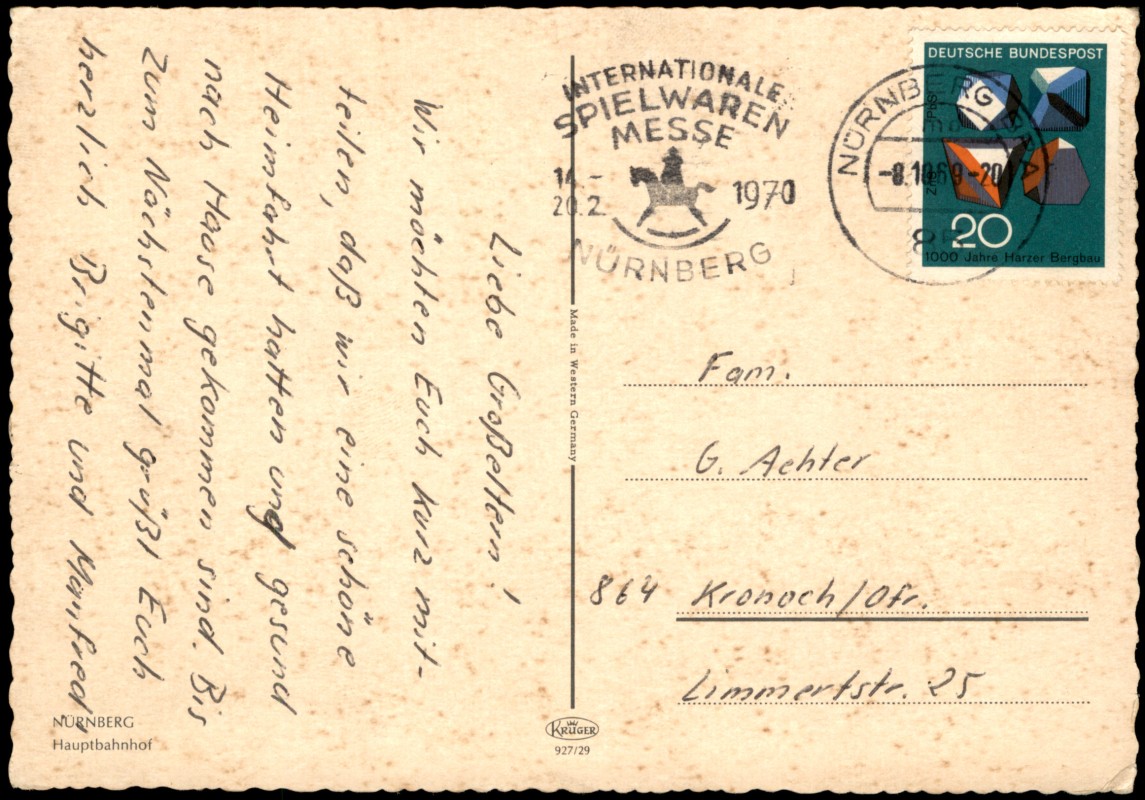 Liebe Großeltern!
Wir möchten Euch kurz mit-
teilen, daß wir eine schöne
Heimfahrt hatten und gesund
nach Hause gekommen sind. Bis
zum Nächstenmal grüßt Euch
herzlich Brigitte und Manfred.
NÜRNBERG
Hauptbahnhof
Made in Western Germany
KRÜGER
927/29
INTERNATIONALE
SPIELWAREN
MESSE
14.-
20.2. 1970
NÜRNBERG
NÜRNBERG
-8.10.69-20
85
DEUTSCHE BUNDESPOST
PbS
ZnS
20
1000 Jahre Harzer Bergbau
Fam.
G. Aehter
864 Kronach/Ofr.
Limmertstr. 25